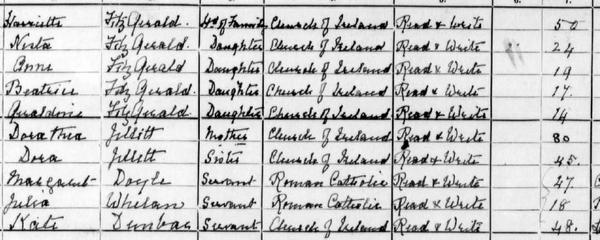 Harriette FitzGerald Hd of Family Church of Ireland Read & Write 50
Nesta FitzGerald Daughter Church of Ireland Read & Write 24
Anne FitzGerald Daughter Church of Ireland Read & Write 19
Beatrice FitzGerald Daughter Church of Ireland Read & Write 17
Geraldine FitzGerald Daughter Church of Ireland Read & Write 14
Dorathea Jillett Mother Church of Ireland Read & Write 80
Dora Jellett Sister Church of Ireland Read & Write 45
Margaret Doyle Servant Roman Catholic Read & Write 27
Julia Whelan Servant Roman Catholic Read & Write 18
Kate Dunbar Servant Church of Ireland Read & Write 48